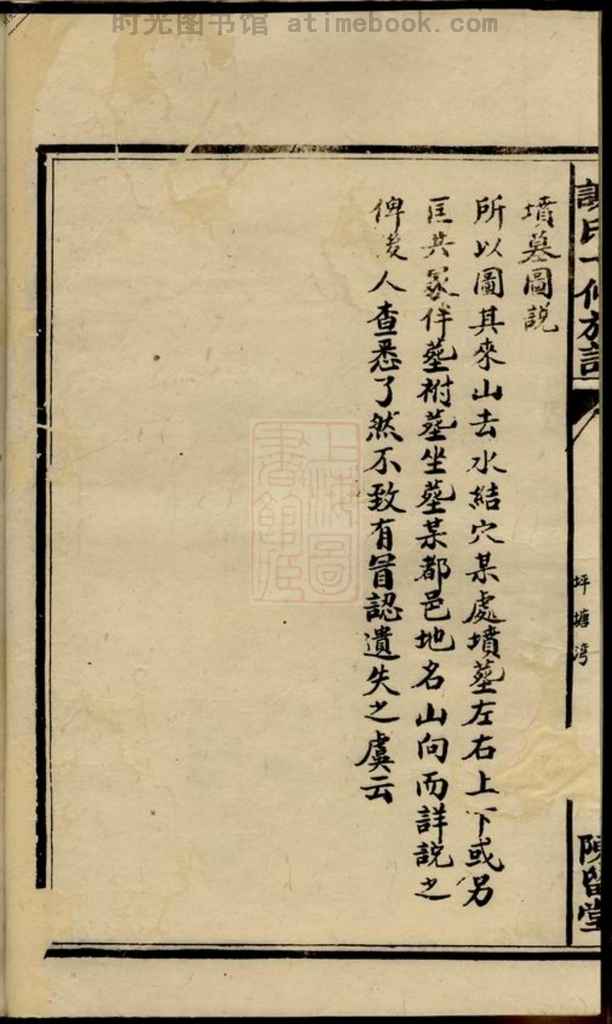 时光图书馆 atimebook.com
墳墓圖説
所以圖其來山去水結穴某處墳塟左右上下或另
匡共冡伴塟祔塟坐塟某都邑地名山向而詳説之
俾後人查悉了然不致有冒認遺失之虞云
坪塘湾
陳留堂
上海圖
書館